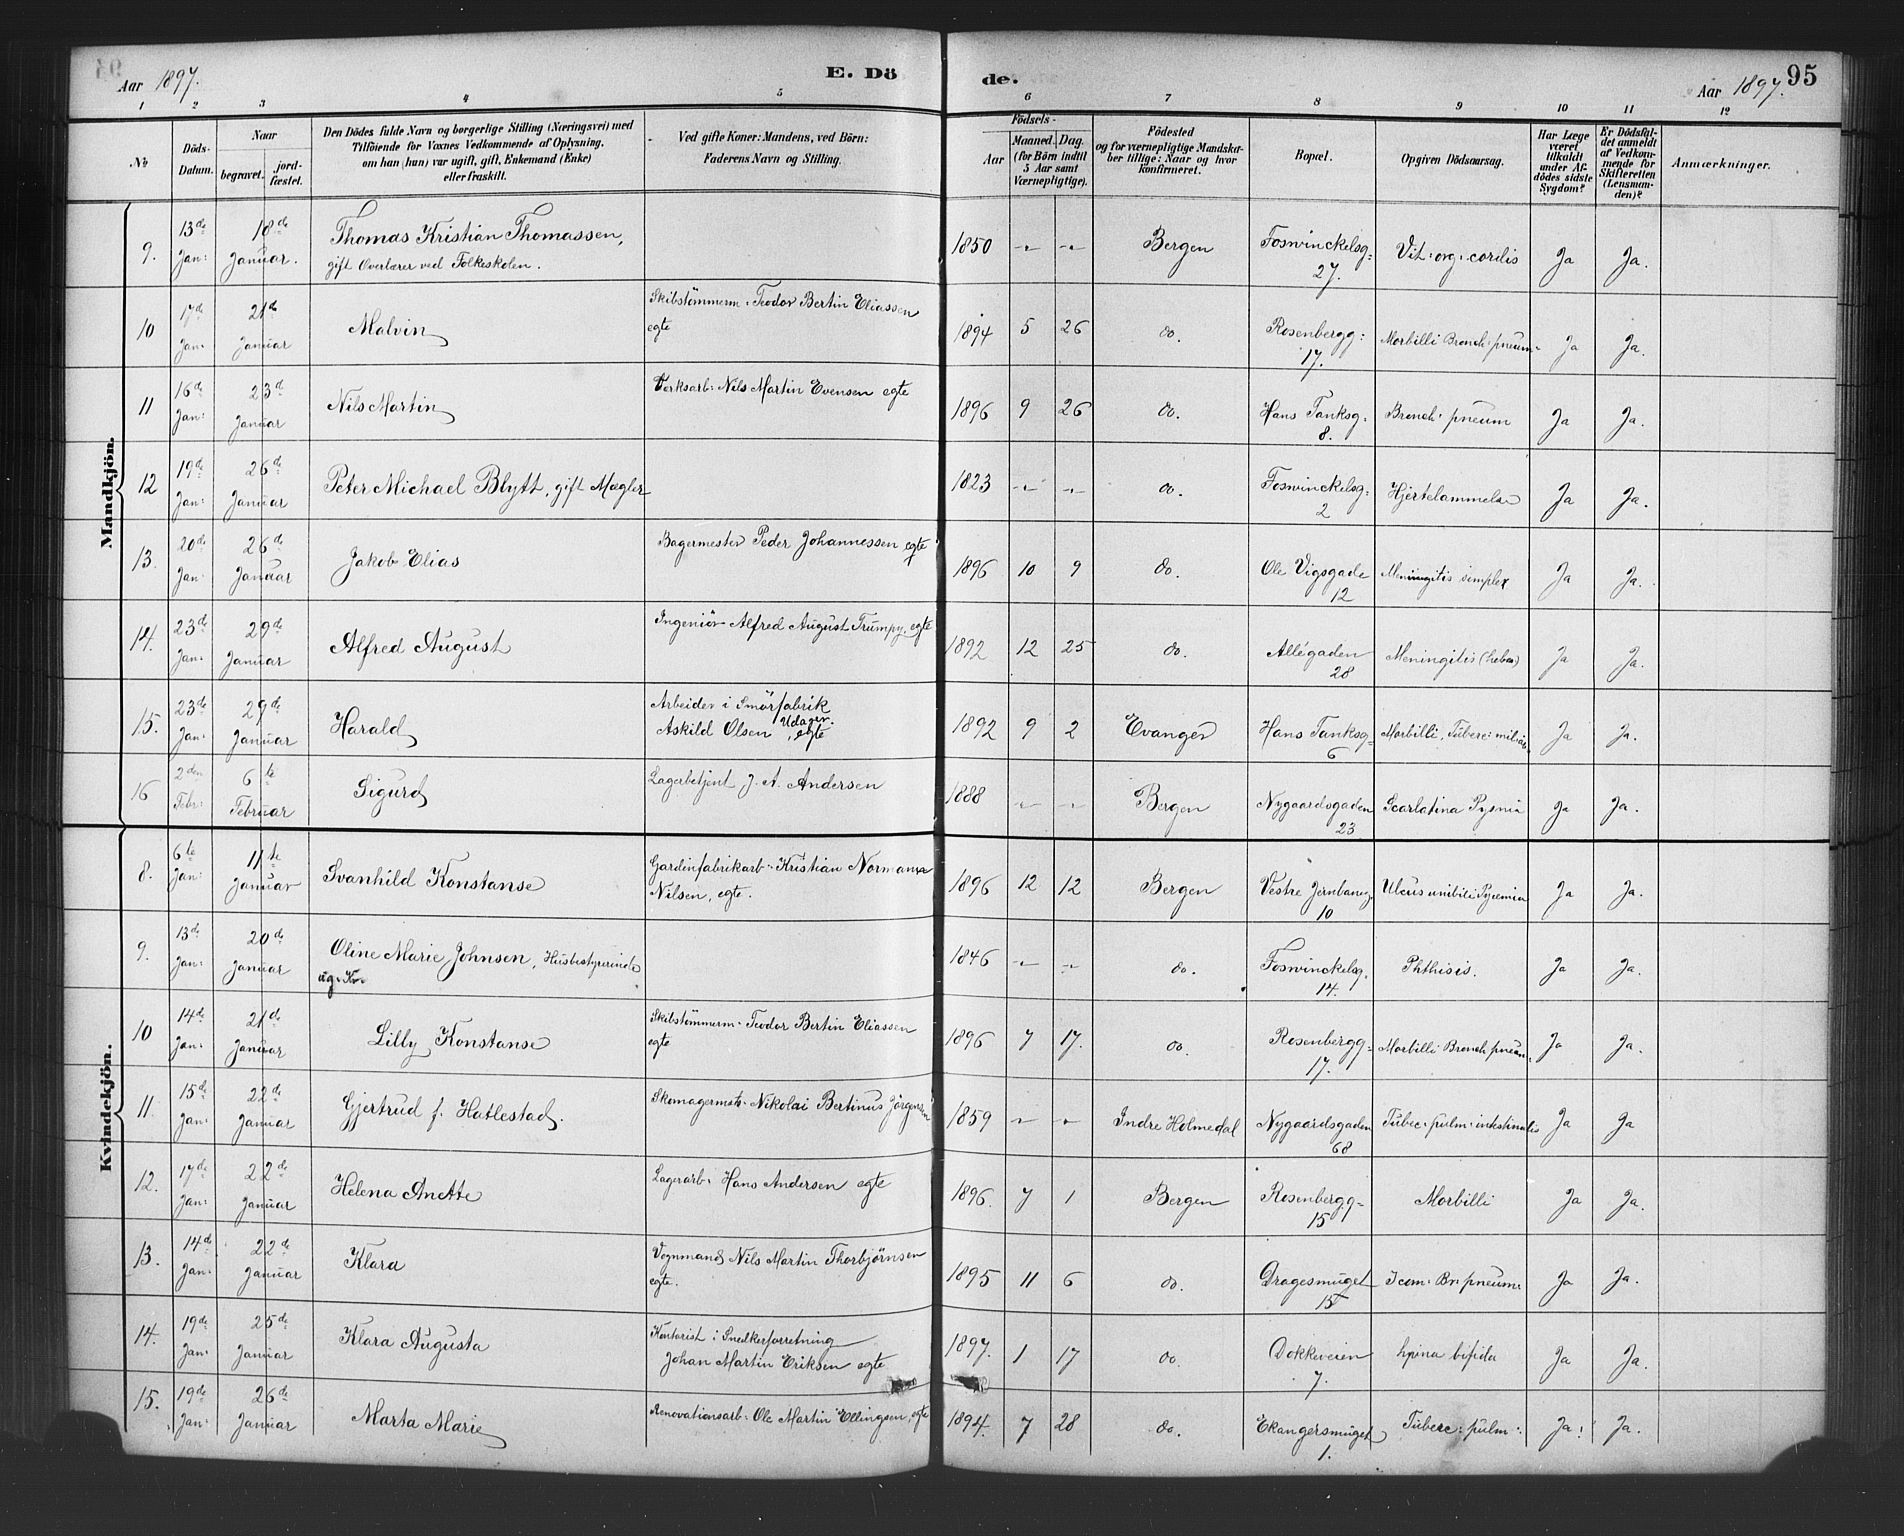 Aar 1897.
E. Dö
de.
Aar 1897.
95
1 2 3 4 5 6 7 8 9 10 11 12
No
Döds-Datum.
Naar
begravet.
jord-fæstet.
Den Dödes fulde Navn og borgerlige Stilling (Næringsvei) med
Tilföiende for Voxnes Vedkommende af Oplysning,
om han (hun) var ugift, gift, Enkemand (Enke)
eller fraskilt.
Ved gifte Koner: Mandens, ved Börn:
Faderens Navn og Stilling.
Födsels-
Aar
Maaned. Dag.
(for Börn indtil
5 Aar samt
Værnepligtige).
Födested
og for værnepligtige Mandskaber tillige: Naar og hvor
konfirmeret.
Bopæl.
Opgiven Dödsaarsag.
Har Læge
været
tilkaldt
under Afdödes sidste
Sygdom?
Er Dödsfaldet anmeldt
af Vedkommende for
Skifteretten
(Lensmanden)?
Anmærkninger.
Mandkjön.
9. 13de Jan: 18de Januar. Thomas Kristian Thomassen, gift Overlærer ved Folkeskolen. 1850 -"- -"- Bergen Foswinckelsg: 27. Vit: org: cordis Ja Ja.
10 17de Jan: 21de Januar Malvin Skibstömmerm: Teodor Bertin Eliassen egte 1894 5 26 do. Rosenbergg: 17. Morbilli Bronch: pneum: Ja Ja.
11 16de Jan: 23de Januar Nils Martin Verksarb: Nils Martin Evensen egte 1896 9 26 do. Hans Tanksg: 8. Bronch: pneum Ja Ja.
12 19de Jan: 26de Januar Peter Michael Blytt, gift Mægler 1823 -"- -"- do. Foswinckelsg: 2 Hjertelammelse Ja Ja.
13. 20de Jan: 26de Januar Jakob Elias Bagermester Peder Johannessen egte 1896 10 9 do. Ole Vigsgade 12 Meningitis simplex Ja Ja.
14. 23de Jan: 29de Januar Alfred August Ingeniör Alfred August Trumpy, egte 1892 12 25 do. Allégaden 28 Meningitis Ja Ja.
15. 23de Jan: 29de Januar Harald Arbeider i Smörfabrik Askild Olsen Udager, egte 1892 9 2 Evanger Hans Tanksg: 6 Morbilli, Tuberc: miliar: Ja Ja.
16 2den Febr: 6te Februar Sigurd Lagerbetjent J. A. Andersen 1888 -"- -"- Bergen Nygaardsgaden 23 Scarlatina Pyæmia Ja Ja.
Kvindekjön.
8. 6te Jan: 11te Januar Svanhild Konstanse Gardinfabrikarb: Kristian Normann Nilsen, egte. 1896 12 12 Bergen Vestre Jernbaneg. 10 Ulcus umbili Pyæmia Ja Ja.
9. 13de Jan: 20de Januar Oline Marie Johnsen, Husbestyrerinde ug. Kv. 1846 -"- -"- do. Foswinckelsg. 14. Phthisis. Ja Ja.
10 14de Jan: 21de Januar Lilly Konstanse Skibstömmerm: Teodor Bertin Eliassen egte 1896 7 17. do. Rosenbergg: 17. Morbilli Bronch pneum: Ja Ja.
11. 15de Jan: 22de Januar Gjertrud f. Hatlestad. Skomagermstr. Nikolai Bertinus Jörgensen 1859 -"- -"- Indre Holmedal Nygaardsgaden 68 Tuberc: pulm: intestinalis Ja Ja
12. 17de Jan: 22de Januar Helena Anette Lagerarb: Hans Andersen egte 1896. 7 1 Bergen Rosenbergg: 15 Morbilli Ja Ja.
13. 14de Jan: 22de Januar Klara Vognmand Nils Martin Thorbjörnsen egte. 1895 11 6 do. Dragesmuget 15 Icam: Br: pneum: Ja Ja.
14. 19de Jan: 25de Januar Klara Augusta Kontorist i Snedkerforretning Johan Martin Eriksen egte 1897. 1 17 do. Dokkeveien 7. Spina bifida Ja Ja.
15. 19de Jan: 26de Januar Marta Marie Renovationsarb: Ole Martin Ellingsen, egte 1894. 7 28 do. Ekangersmuget 1. Tuberc: pulm: Ja: Ja.